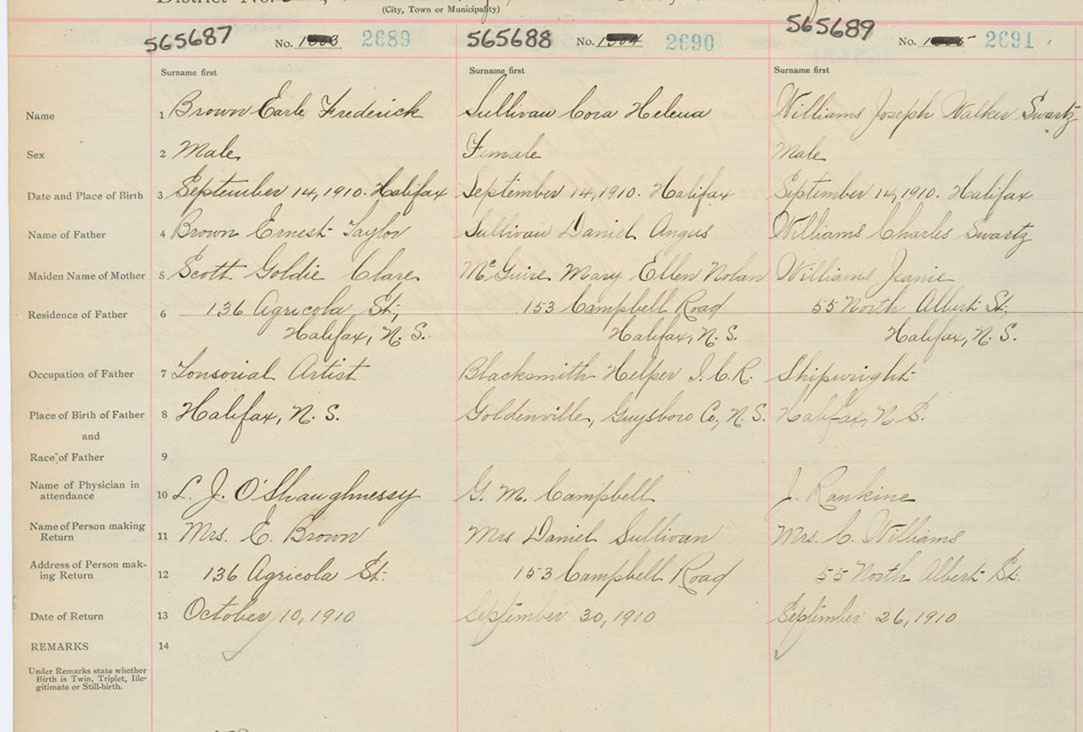 District No.
(City, Town or Municipality)
565687 No. 2689 565688 No. 2690 565689 No. 2691
Surname first Surname first Surname first
Name 1 Brown Earle Frederick Sullivan Cora Helena Williams Joseph Walker Swartz
Sex 2 Male Female Male
Date and Place of Birth 3 September 14, 1910. Halifax September 14, 1910. Halifax September 14, 1910. Halifax
Name of Father 4 Brown Ernest Taylor Sullivan Daniel Angus Williams Charles Swartz
Maiden Name of Mother 5 Scott Goldie Clare McGuire Mary Ellen Nolan Williams Jeanie
Residence of Father 6 136 Agricola St., 153 Campbell Road 55 North Albert St.
Halifax, N. S. Halifax, N. S. Halifax, N. S.
Occupation of Father 7 Tonsorial Artist Blacksmith Helper I.C.R. Shipwright
Place of Birth of Father 8 Halifax, N. S. Goldenville, Guysboro Co, N. S. Halifax, N. S.
and
Race of Father 9
Name of Physician in
attendance 10 L. J. O'Shaughnessy G. M. Campbell J. Rankine
Name of Person making
Return 11 Mrs. E. Brown Mrs Daniel Sullivan Mrs. C. Williams
Address of Person mak-
ing Return 12 136 Agricola St. 153 Campbell Road 55 North Albert St.
Date of Return 13 October 10, 1910 September 30, 1910 September 26, 1910
REMARKS 14
Under Remarks state whether
Birth is Twin, Triplet, Ille-
gitimate or Still-birth.